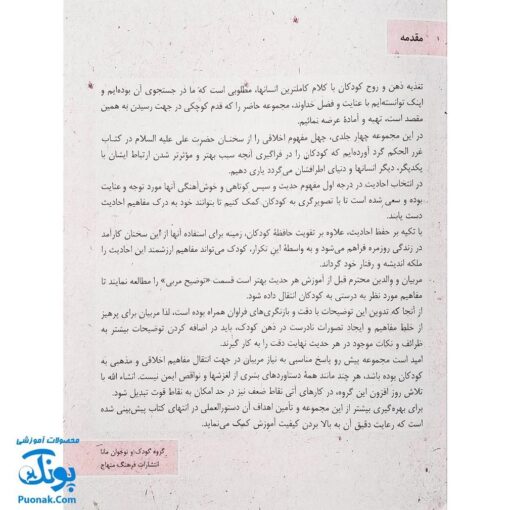 مقدمه
تغذیه ذهن و روح کودکان با کلام کاملترین انسانها، مطلوبی است که ما در جستجوی آن بوده‌ایم و
اینک توانسته‌ایم با عنایت و فضل خداوند، مجموعه حاضر را که قدم کوچکی در جهت رسیدن به همین
مقصد است، تهیه و آمادهٔ عرضه نمائیم.
در این مجموعه چهار جلدی، چهل مفهوم اخلاقی را از سخنان حضرت علی علیه السلام در کتاب
غرر الحکم گرد آورده‌ایم که کودکان را در فراگیری آنچه سبب بهتر و مؤثرتر شدن ارتباط ایشان با
یکدیگر، دیگر انسانها و دنیای اطرافشان می‌گردد یاری دهیم.
در انتخاب احادیث در درجه اول مفهوم حدیث و سپس کوتاهی و خوش‌آهنگی آنها مورد توجه و عنایت
بوده و سعی شده است تا با تصویرگری به کودکان کمک کنیم تا بتوانند خود به درک مفاهیم احادیث
دست یابند.
با تکیه بر حفظ احادیث، علاوه بر تقویت حافظهٔ کودکان، زمینه برای استفاده آنها از این سخنان کارآمد
در زندگی روزمره فراهم می‌شود و به واسطهٔ این تکرار، کودک می‌تواند مفاهیم ارزشمند این احادیث را
ملکه اندیشه و رفتار خود گرداند.
مربیان و والدین محترم قبل از آموزش هر حدیث بهتر است قسمت «توضیح مربی» را مطالعه نمایند تا
مفاهیم مورد نظر به درستی به کودکان انتقال داده شود.
از آنجا که تدوین این توضیحات با دقت و بازنگری‌های فراوان همراه بوده است، لذا مربیان برای پرهیز
از خلط مفاهیم و ایجاد تصورات نادرست در ذهن کودک، باید در اضافه کردن توضیحات بیشتر به
ظرائف و نکات موجود در هر حدیث نهایت دقت را به کار گیرند.
امید است مجموعه پیش رو پاسخ مناسبی به نیاز مربیان در جهت انتقال مفاهیم اخلاقی و مذهبی به
کودکان بوده باشد، هر چند مانند همهٔ دستاوردهای بشری از لغزشها و نواقص ایمن نیست. انشاء الله با
تلاش روز افزون این گروه، در کارهای آتی نقاط ضعف نیز در حد امکان به نقاط قوت تبدیل شود.
برای بهره‌گیری بیشتر از این مجموعه و تأمین اهداف آن دستورالعملی در انتهای کتاب پیش‌بینی شده
است که رعایت دقیق آن به بالا بردن کیفیت آموزش کمک می‌نماید.
گروه کودک و نوجوان مانا
انتشارات فرهنگ منهاج
محصولات آموزشی
پونک
Puonak.Com